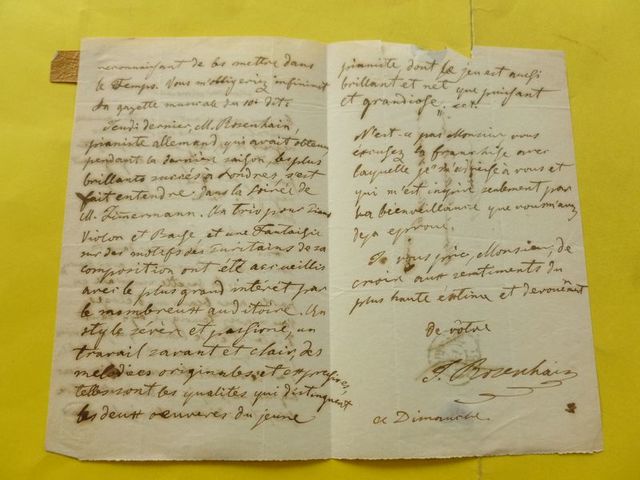 reconnaissant de les mettre dans
le Temps. Vous m'obligeriez infiniment
La gazette musicale du 10 dit:
Jeudi dernier, M. Rosenhain,
pianiste allemand, qui avait obtenu
pendant la dernière saison, les plus
brillants succès à Londres, s'est
fait entendre dans la soirée de
M. Zimermann. Un trio pour Piano
Violon et Basse et une Fantaisie
sur des motifs des Puritains de sa
composition ont été accueillis
avec le plus grand interet par
le nombreux auditoire. Un
style sevère et passioné, un
travail savant et clair, des
melodies originales et expressives
telles sont les qualites qui distinguent
les deux oeuvres du jeune
pianiste dont le jeu est aussi
brillant et net que puissant
et grandiose. ect.
N'est ce pas Monsieur vous
excusez la franchise avec
laquelle je m'adresse à vous et
qui m'est inspiré seulement par
la bienveillance que vous m'avez
deja eprouvé.
Je vous prie, Monsieur, de
croire aux sentiments du
plus haute estime et devouément
De vôtre
J. Rosenhain
ce Dimanche